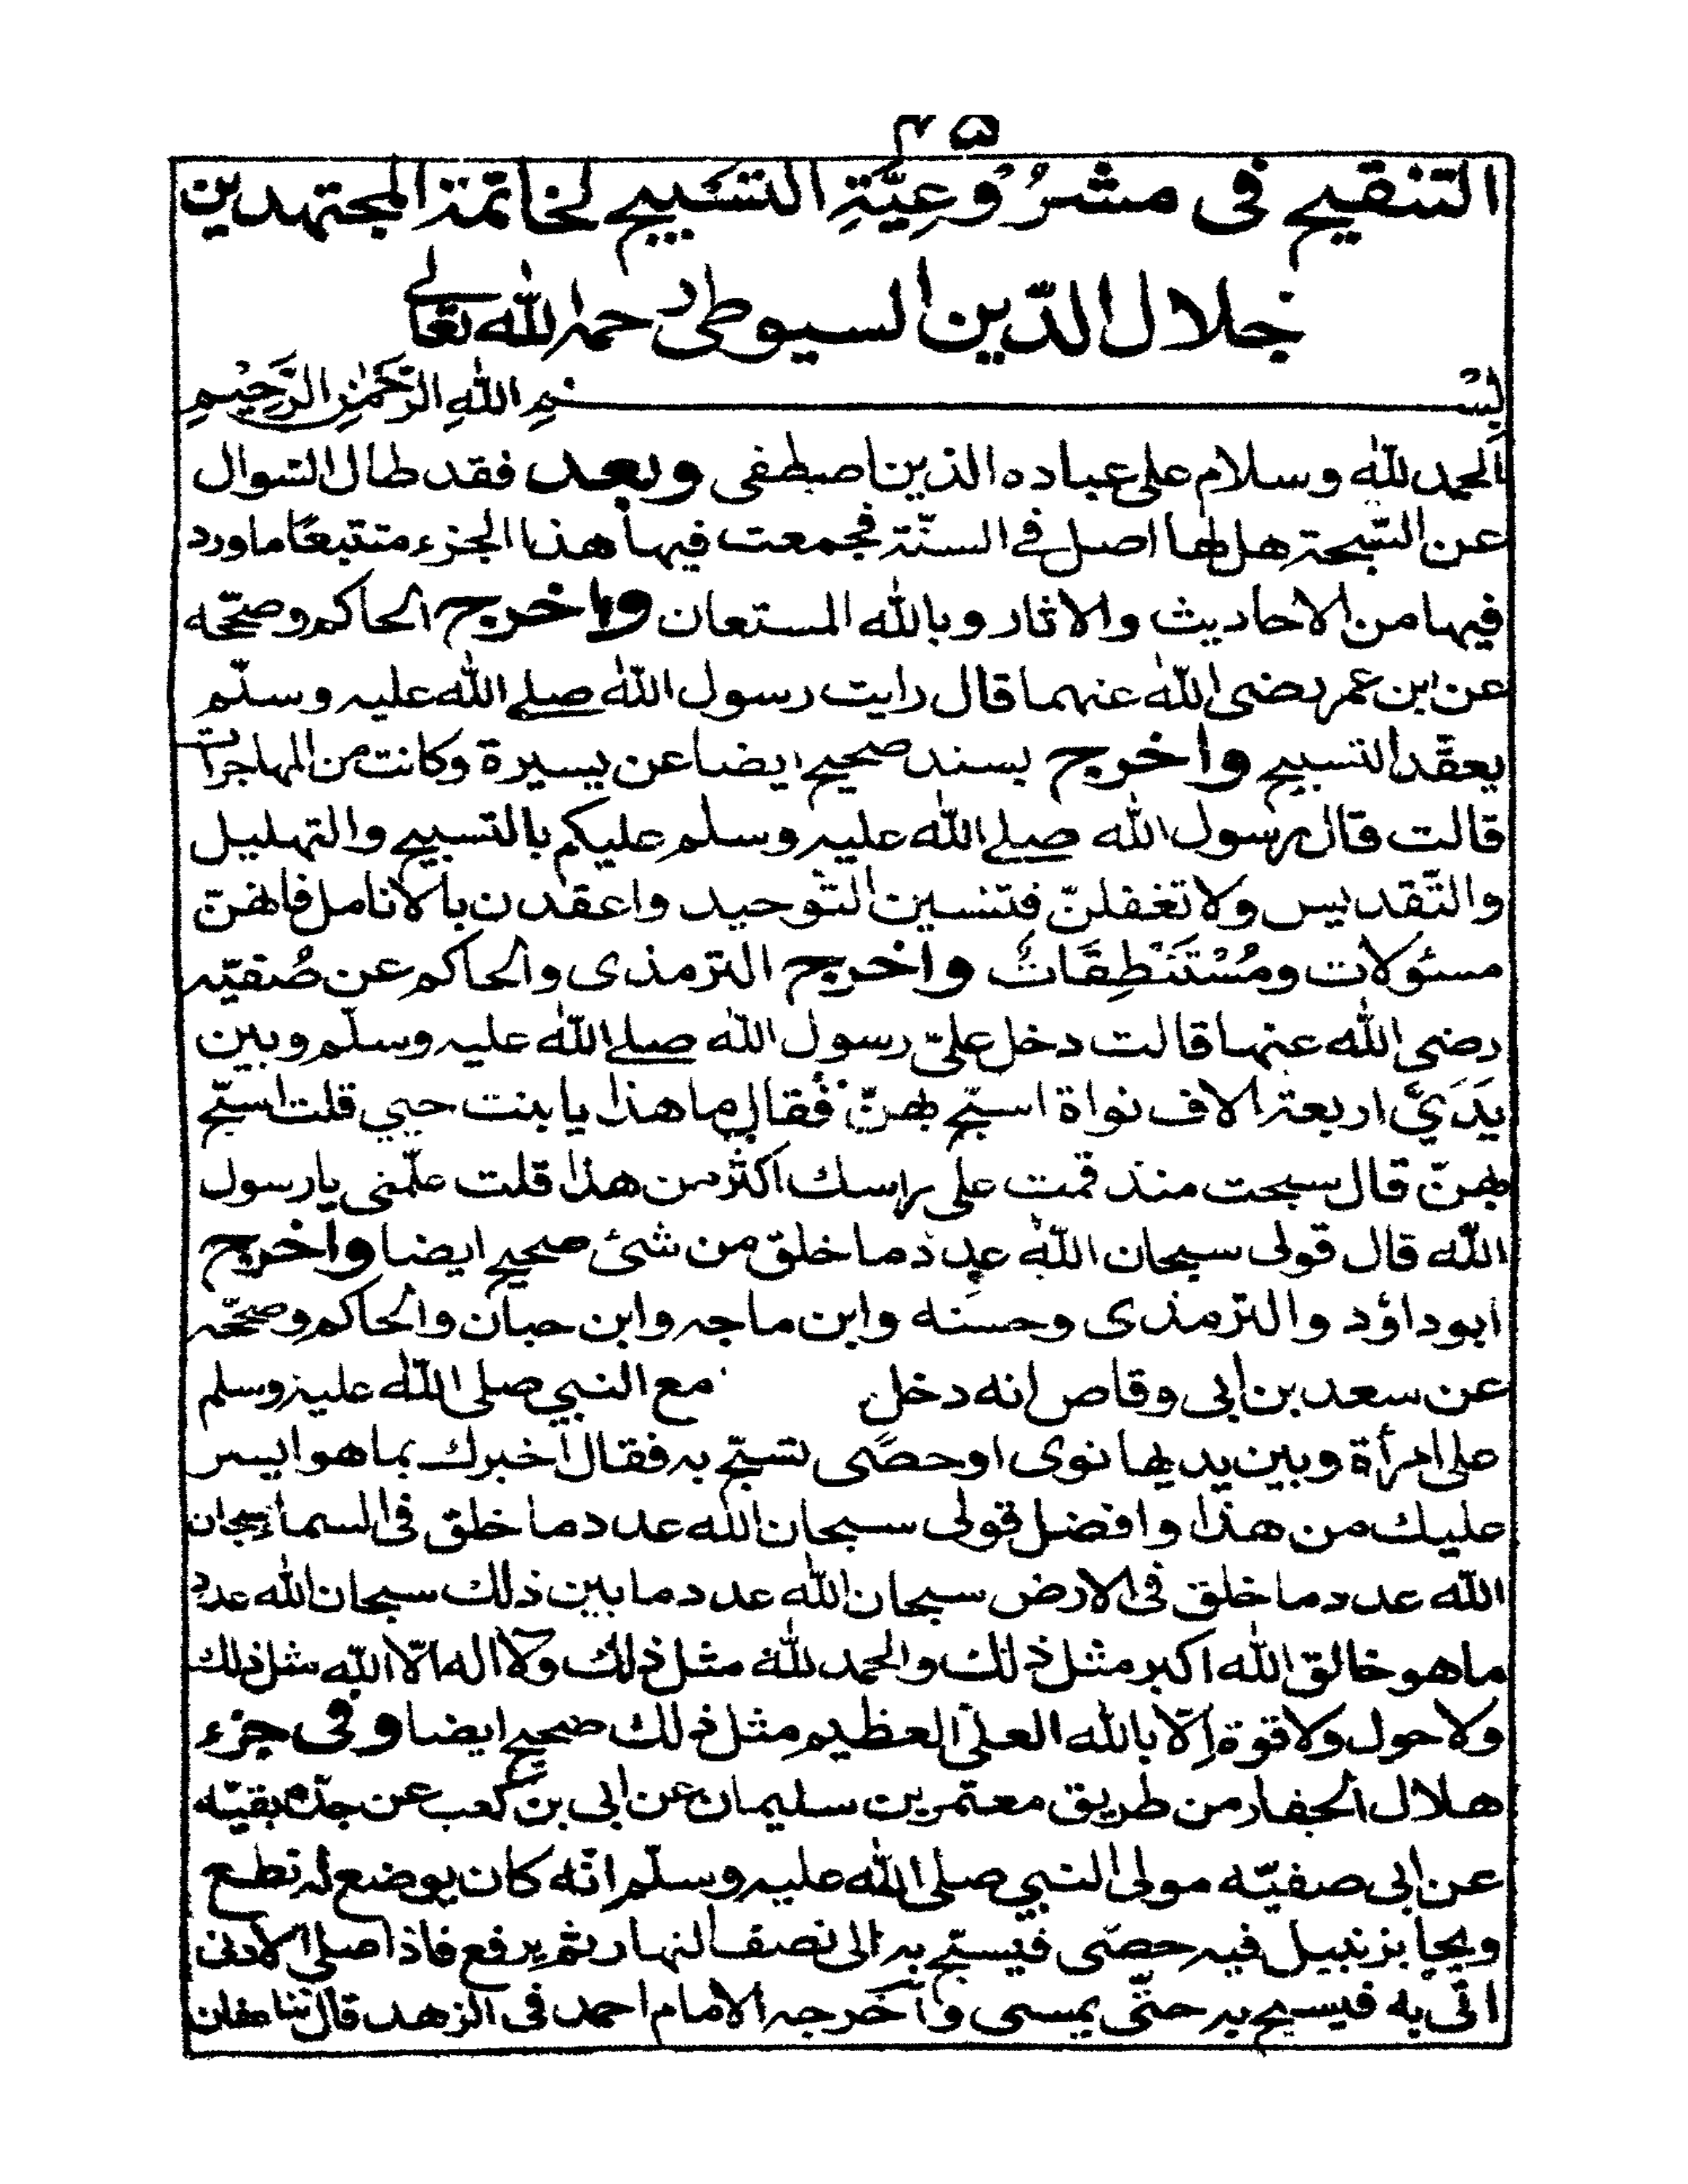 التنقيح فى مشرُوعِيَّةِ التسبيح لخاتمة المجتهدين
جلال الدّين السيوطى رحمہ اللّٰه تعالے
بِسْــــــــمِ اللّٰهِ الرَّحْمٰنِ الرَّحِيْمِ
الحمد للّٰه وسلام على عباده الذين اصطفى وبعد فقد طال السّوال
عن السّبحة هل لها اصل فے السنّة فجمعت فيها هذا الجزء متتبعًا ماورد
فيها من الاحاديث والاثار وباللّٰه المستعان واخرج الحاكم وصحّحه
عن ابن عمر رضى اللّٰه عنهما قال رايت رسول اللّٰه صلے اللّٰه عليہ وسلّم
يعقد التسبيح واخرج بسند صحيح ايضا عن يسيرة وكانت من المهاجرات
قالت قال رسول اللّٰه صلے اللّٰه عليہ وسلم عليكم بالتسبيح والتهليل
والتّقديس ولا تغفلنّ فتنسين التّوحيد واعقدن بالانامل فانهنّ
مسئولات ومُسْتَنْطِقَاتٌ واخرج الترمذى والحاكم عن صُفيّہ
رضى اللّٰه عنها قالت دخل علىّ رسول اللّٰه صلے اللّٰه عليہ وسلّم وبين
يَدَيَّ اربعة الاف نواة اسبّح بهنّ فقال ما هذا يا بنت حيي قلت اسبّح
بهنّ قال سبحت منذ قمت على راسك اكثر من هذا قلت علّمنى يا رسول
اللّٰه قال قولى سبحان اللّٰه عدد ما خلق من شئ صحيح ايضا واخرج
ابو داؤد والترمذى وحسنه وابن ماجہ وابن حبان والحاكم وصحّحہ
عن سعد بن ابى وقاص انه دخل مع النبي صلى اللّٰه عليہ وسلم
على امرأة وبين يديها نوى او حصًى تسبّح بہ فقال اخبرك بما هو ايسر
عليك من هذا وافضل قولى سبحان اللّٰه عدد ما خلق فى السماء سبحان
اللّٰه عدد ما خلق فى الارض سبحان اللّٰه عدد ما بين ذلك سبحان اللّٰه عدد
ما هو خالق اللّٰه اكبر مثل ذلك والحمد للّٰه مثل ذلك ولا اله الّا اللّٰه مثل ذلك
ولا حول ولا قوة اِلّا باللّٰه العلىّ العظيم مثل ذلك صحيح ايضا وفى جزء
هلال الحفار من طريق معتمر بن سليمان عن ابى بن كعب عن جدّه بقيّه
عن ابى صفيّه مولى النبي صلى اللّٰه عليہ وسلّم انّه كان يوضع لہ نطع
ويجا بزنبيل فيہ حصّى فيسبّح بہ الى نصف النهار ثم يرفع فاذا صلى الاولى
اتى به فيسبح بہ حتّى يمسى واخرجہ الامام احمد فى الزهد قال ثنا عفان